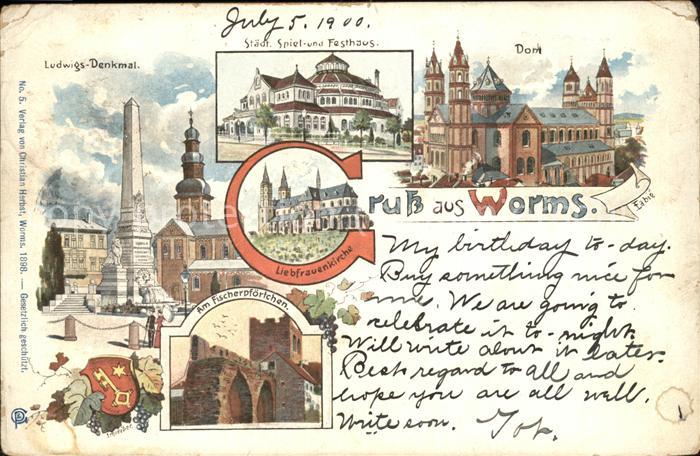 July 5. 1900.
Städt. Spiel-und Festhaus.
Dom
Ludwigs-Denkmal.
No. 5. Verlag von Christian Herbst, Worms. 1898. — Gesetzlich geschützt.
Gruß aus Worms.
Liebfrauenkirche
Am Fischerpförtchen.
My birthday to-day.
Buy something nice for
me. We are going to
celebrate it to-night.
Will write about it later.
Best regard to all and
hope you are all well.
Write soon.